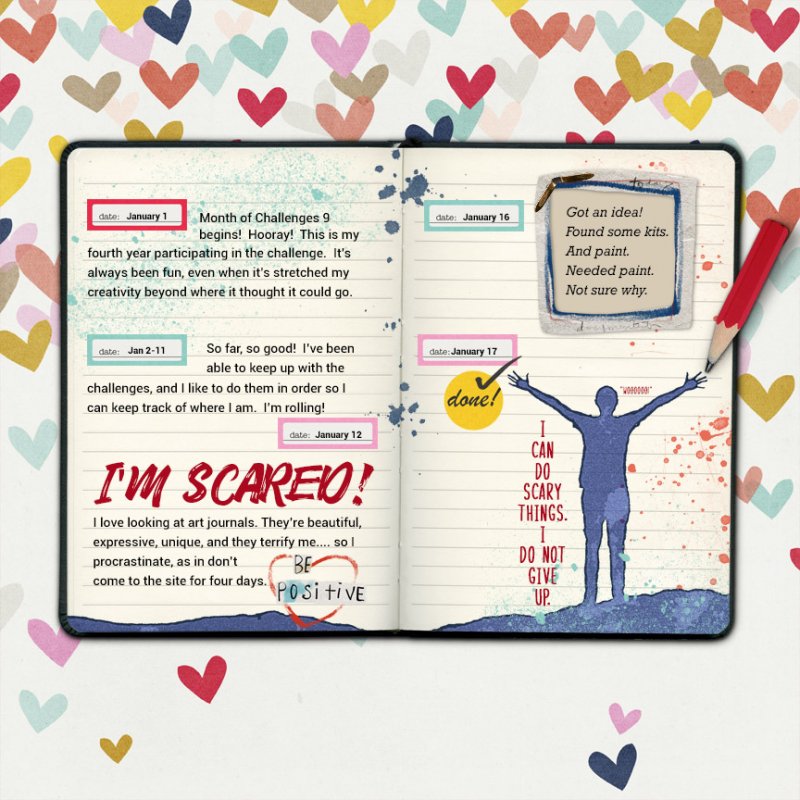 date: January 1
Month of Challenges 9
begins! Hooray! This is my
fourth year participating in the challenge. It's
always been fun, even when it's stretched my
creativity beyond where it thought it could go.
date: Jan 2-11
So far, so good! I've been
able to keep up with the
challenges, and I like to do them in order so I
can keep track of where I am. I'm rolling!
date: January 12
I'M SCARED!
I love looking at art journals. They're beautiful,
expressive, unique, and they terrify me.... so I
procrastinate, as in don't
come to the site for four days.
BE
POSitiVE
date: January 16
Got an idea!
Found some kits.
And paint.
Needed paint.
Not sure why.
date: January 17
done!
"WOOOOOH"
I
CAN
DO
SCARY
THINGS.
I
DO NOT
GIVE
UP.